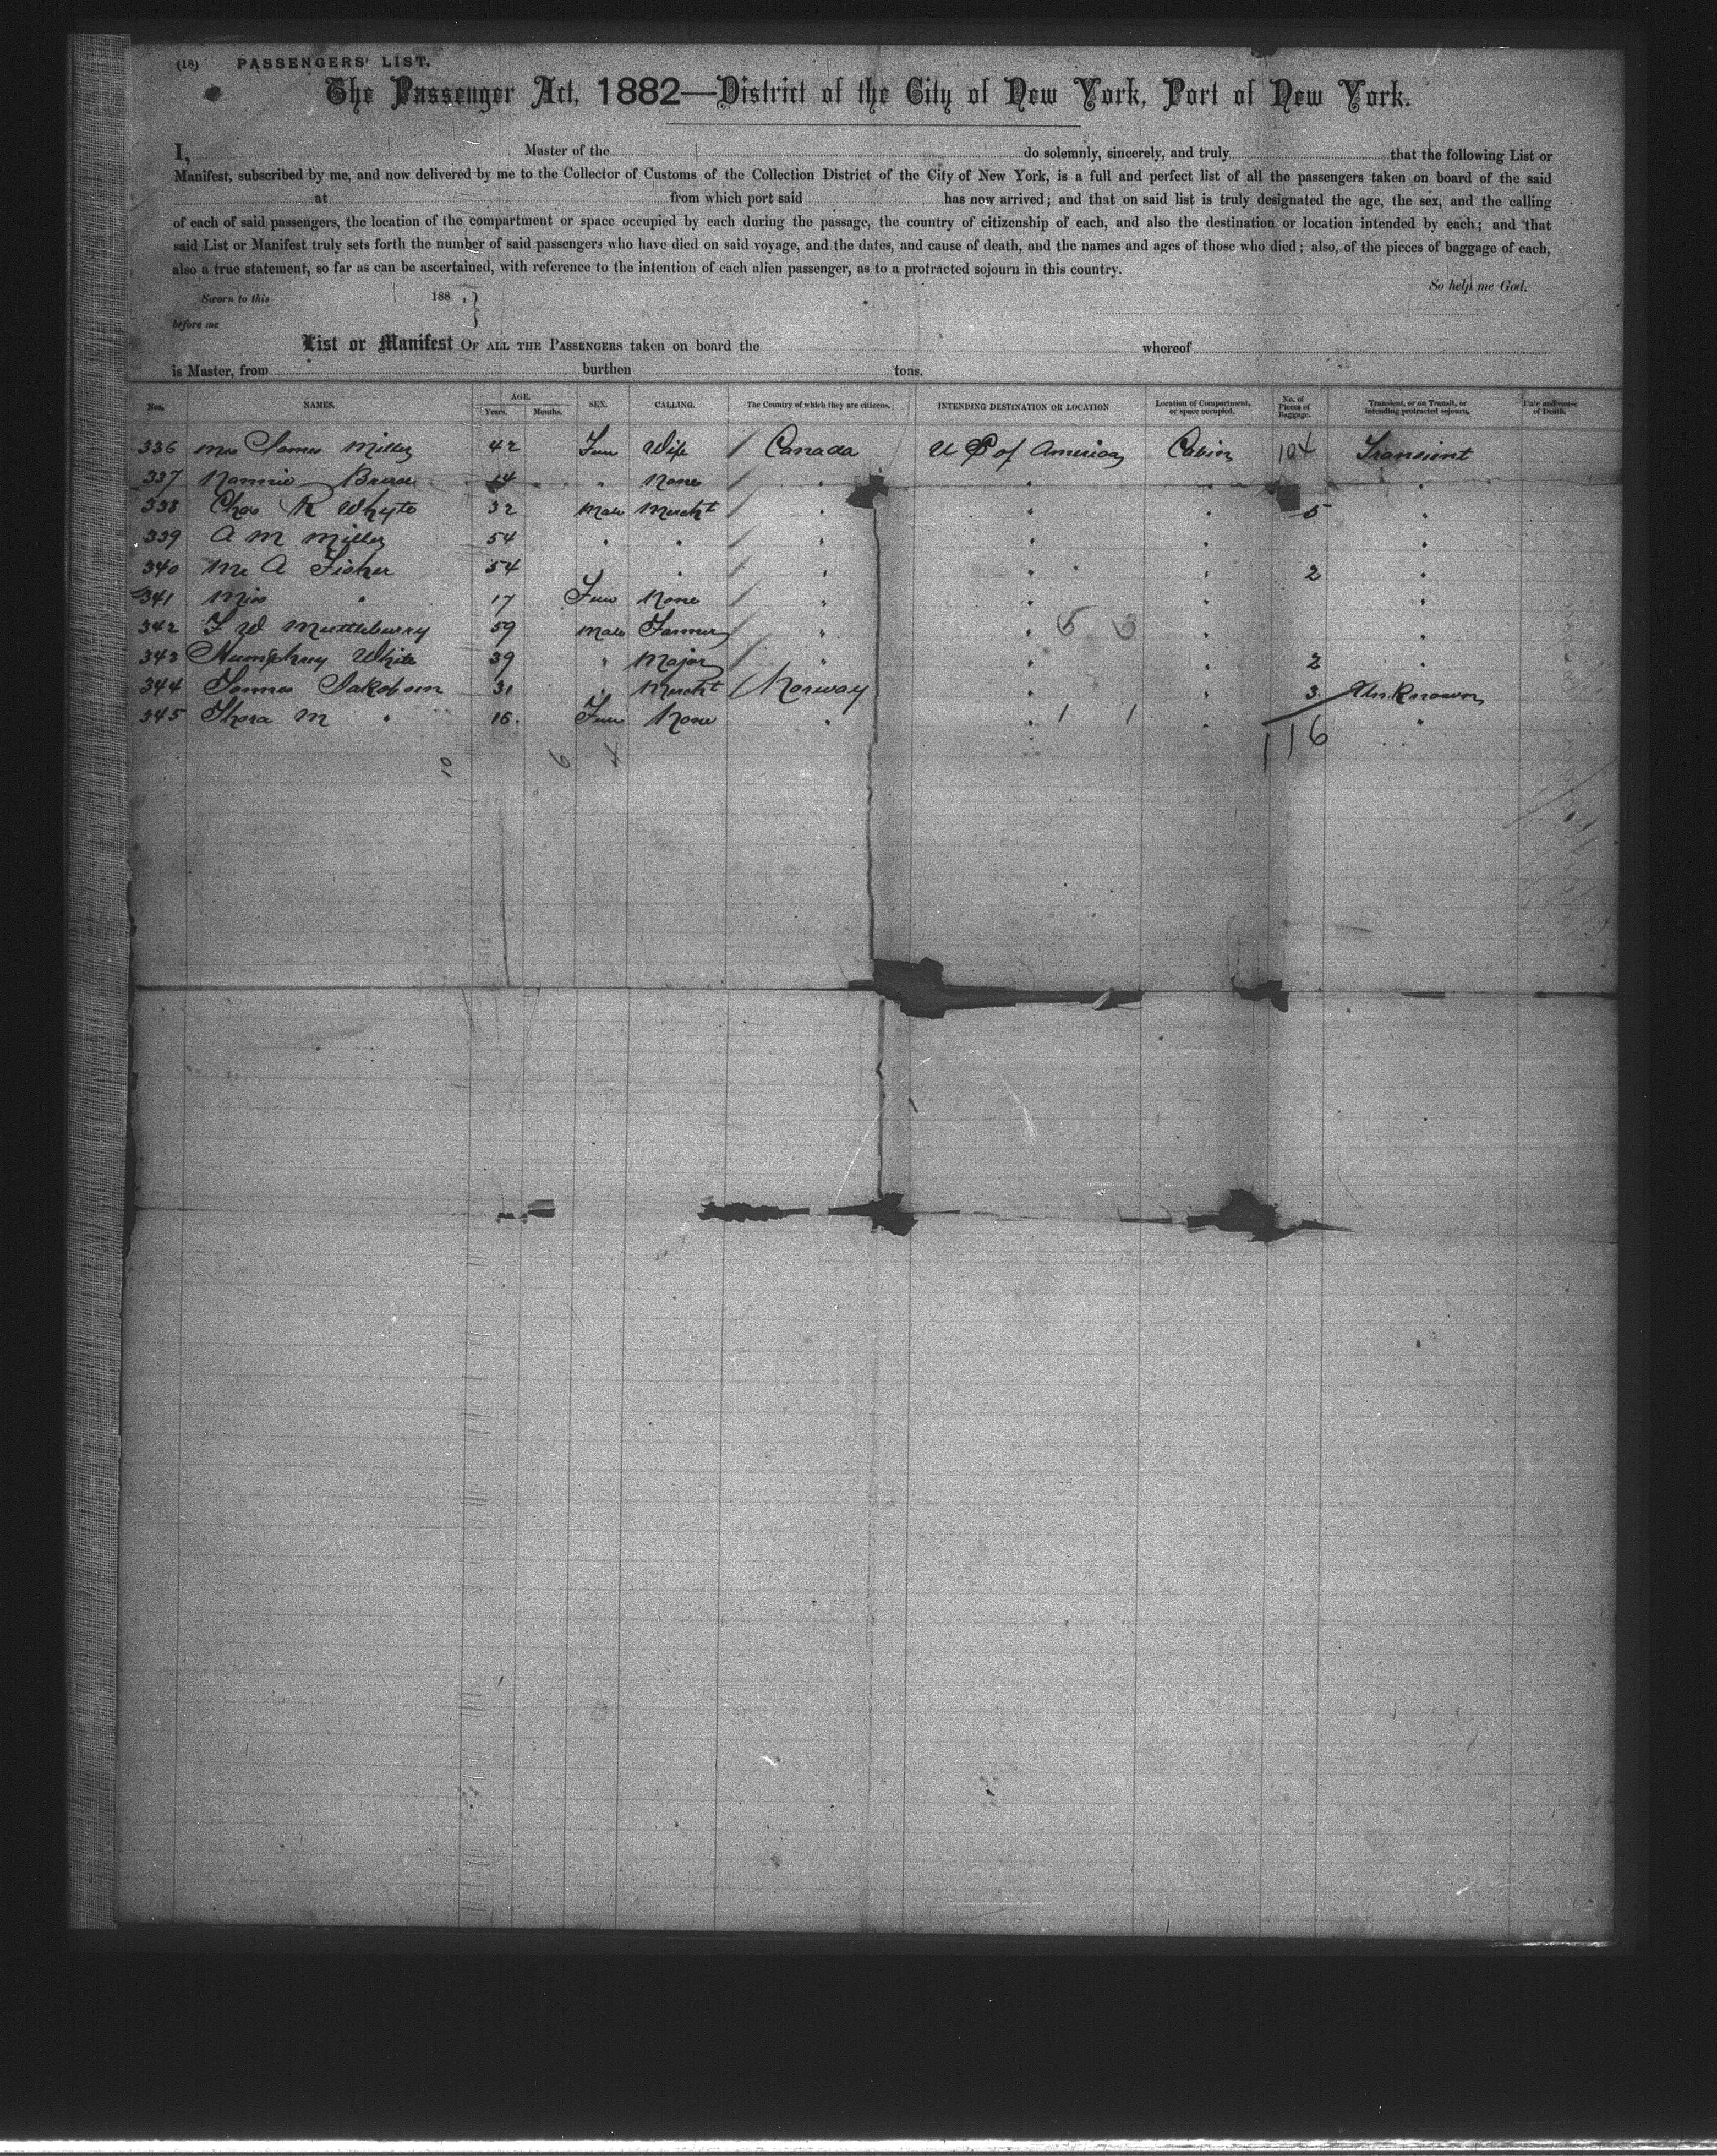 (18) PASSENGERS' LIST.
The Passenger Act, 1882—District of the City of New York, Port of New York.
I, Master of the do solemnly, sincerely, and truly that the following List or
Manifest, subscribed by me, and now delivered by me to the Collector of Customs of the Collection District of the City of New York, is a full and perfect list of all the passengers taken on board of the said
at from which port said has now arrived; and that on said list is truly designated the age, the sex, and the calling
of each of said passengers, the location of the compartment or space occupied by each during the passage, the country of citizenship of each, and also the destination or location intended by each; and that
said List or Manifest truly sets forth the number of said passengers who have died on said voyage, and the dates, and cause of death, and the names and ages of those who died; also, of the pieces of baggage of each,
also a true statement, so far as can be ascertained, with reference to the intention of each alien passenger, as to a protracted sojourn in this country.
So help me God.
Sworn to this 188 , }
before me
List or Manifest OF ALL THE PASSENGERS taken on board the whereof
is Master, from burthen tons.
Nos. NAMES. AGE. Years. Months. SEX. CALLING. The Country of which they are citizens. INTENDING DESTINATION OR LOCATION Location of Compartment, or space occupied. No. of Pieces of Baggage. Transient, or on Transit, or intending protracted sojourn. Date and cause of Death.
336 Mrs James Miller 42 Fem Wife / Canada U S of America Cabin 104 Transient
337 Nannie 14 " None / " " " "
338 Chas R Whyte 32 Male Mercht / " " " 5 "
339 A M Miller 54 " " / " " " "
340 Mr A Fisher 54 " / " " " 2 "
341 Miss " 17 Fem None / " " " "
342 F W Muttleburry 59 Male Farmer / " " 5 3 " "
343 Humphrey White 39 " Major / " " " 2 "
344 Jakobsen 31 " Mercht / Norway " " 3 Unknown
345 Thora M " 16 Fem None " " 1 1 " "
116
10 6 4